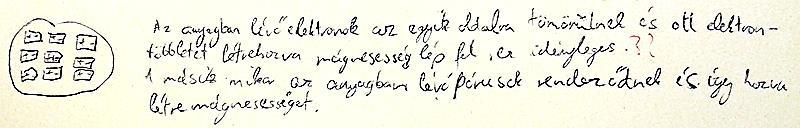 Az anyagban lévő elektronok az egyik oldalra tömörülnek és ott elektron-
többletet létrehozva mágnesesség lép fel, ez ideigleges.??
A másik mikor az anyagban lévő pórusok rendeződnek és így hozva
létre mágnesességet.